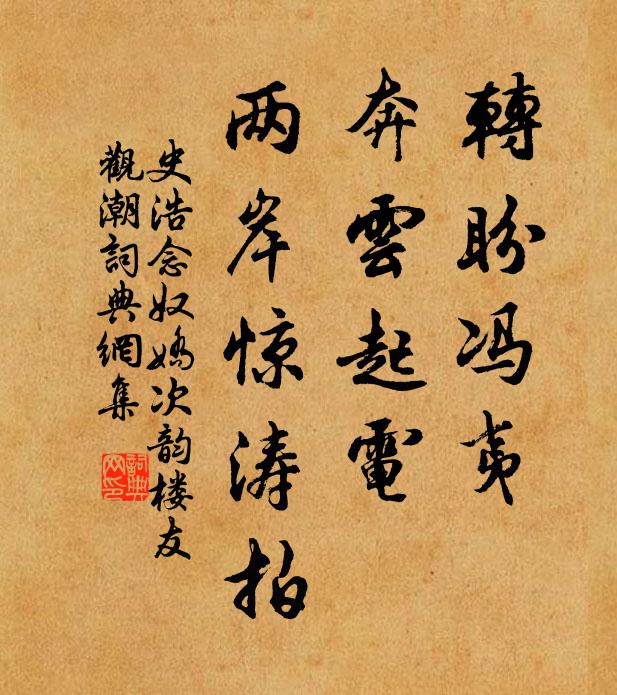 轉盼冯夷
奔雲起電
两岸惊涛拍
史浩念奴嬌次韵楼友
觀潮詞典網集
詞典网印